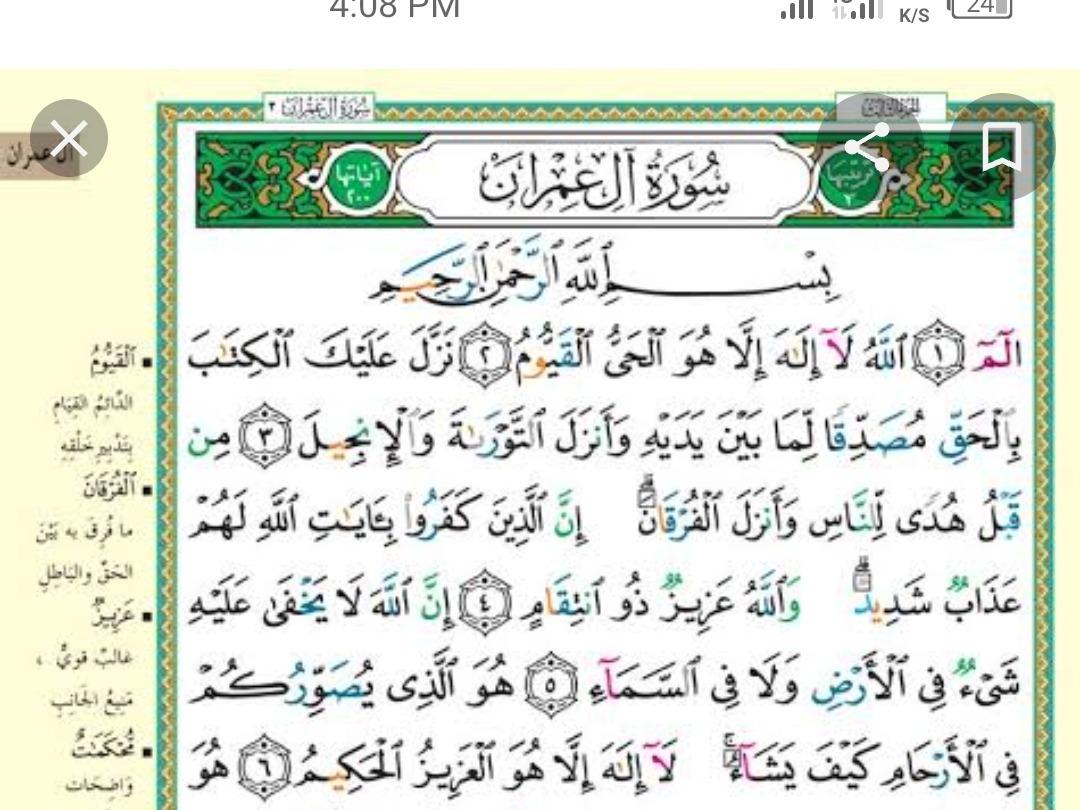 4:08 PM
K/S
24
سُورَةُ آلِ عِمْرَانَ ٣
الجزء الثالث
آل عمران
ترتيبها ٣
سُورَةُ آلِ عِمْرَانَ
آياتها ٢٠٠
بِسْمِ ٱللَّهِ ٱلرَّحْمَٰنِ ٱلرَّحِيمِ
الٓمٓ ١ ٱللَّهُ لَآ إِلَٰهَ إِلَّا هُوَ ٱلْحَىُّ ٱلْقَيُّومُ ٢ نَزَّلَ عَلَيْكَ ٱلْكِتَٰبَ
بِٱلْحَقِّ مُصَدِّقًا لِّمَا بَيْنَ يَدَيْهِ وَأَنزَلَ ٱلتَّوْرَىٰةَ وَٱلْإِنجِيلَ ٣ مِن
قَبْلُ هُدًى لِّلنَّاسِ وَأَنزَلَ ٱلْفُرْقَانَ ۗ إِنَّ ٱلَّذِينَ كَفَرُوا۟ بِـَٔايَٰتِ ٱللَّهِ لَهُمْ
عَذَابٌ شَدِيدٌ ۗ وَٱللَّهُ عَزِيزٌ ذُو ٱنتِقَامٍ ٤ إِنَّ ٱللَّهَ لَا يَخْفَىٰ عَلَيْهِ
شَىْءٌ فِى ٱلْأَرْضِ وَلَا فِى ٱلسَّمَآءِ ٥ هُوَ ٱلَّذِى يُصَوِّرُكُمْ
فِى ٱلْأَرْحَامِ كَيْفَ يَشَآءُ ۚ لَآ إِلَٰهَ إِلَّا هُوَ ٱلْعَزِيزُ ٱلْحَكِيمُ ٦ هُوَ
ٱلْقَيُّومُ
الدَّائِمُ القِيَامِ
بِتَدْبِيرِ خَلْقِهِ
ٱلْفُرْقَانَ
ما فُرِقَ به بَيْنَ
الحَقِّ والبَاطِلِ
عَزِيزٌ
غالبٌ قويٌّ ،
مَنِيعُ الجَانِبِ
مُّحْكَمَٰتٌ
وَاضِحَات